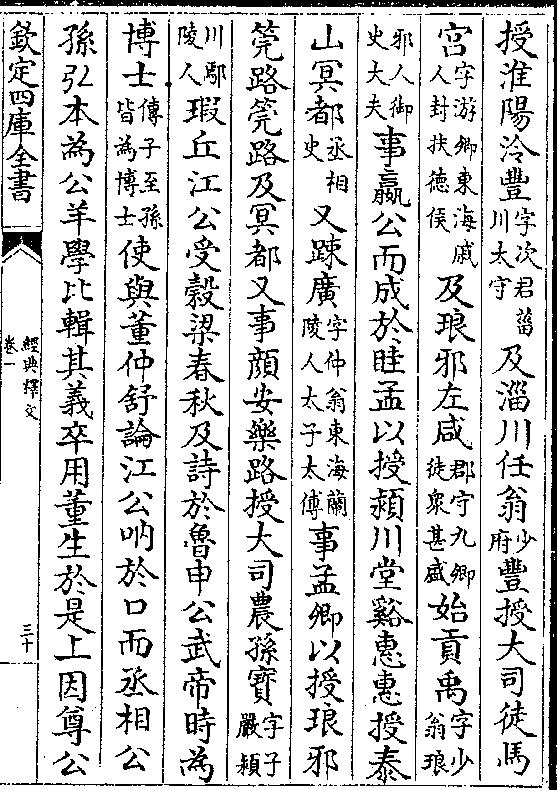 授淮陽泠豐字次君菑川太守及淄川任翁少府豐授大司徒馬
宫字游卿東海戚人封扶德侯及琅邪左咸郡守九卿徒衆甚盛始貢禹字少翁琅
邪人御史大夫事嬴公而成於眭孟以授潁川堂谿惠惠授泰
山冥都丞相史又踈廣字仲翁東海蘭陵人太子太傅事孟卿以授琅邪
筦路筦路及冥都又事顔安樂路授大司農孫寳字子嚴潁
川鄢陵人瑕丘江公受穀梁春秋及詩於魯申公武帝時為
博士傳子至孫皆為博士使與董仲舒論江公吶於口而丞相公
孫弘本為公羊學比輯其義卒用董生於是上因尊公
欽定四庫全書
經典釋文
卷一
三十